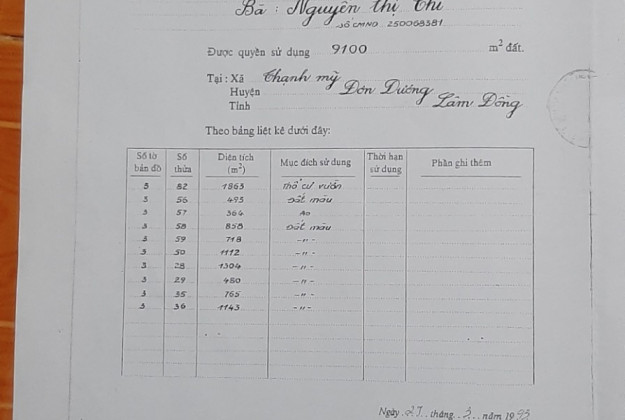 Bà : Nguyễn thị Chi
SỐ CMND 250068381
Được quyền sử dụng 9100 m² đất.
Tại : Xã Thạnh mỹ
Huyện Đơn Dương
Tỉnh Lâm Đồng
Theo bảng liệt kê dưới đây:
Số tờ bản đồ Số thửa Diện tích (m²) Mục đích sử dụng Thời hạn sử dụng Phần ghi thêm
3 52 1863 Thổ cư vườn
3 56 493 Đất màu
3 57 364 Ao
3 58 858 Đất màu
3 59 718 -"-
3 50 1112 -"-
3 28 1304 -"-
3 29 480 -"-
3 35 765 -"-
3 36 1143 -"-
Ngày 27 tháng 3 năm 1993